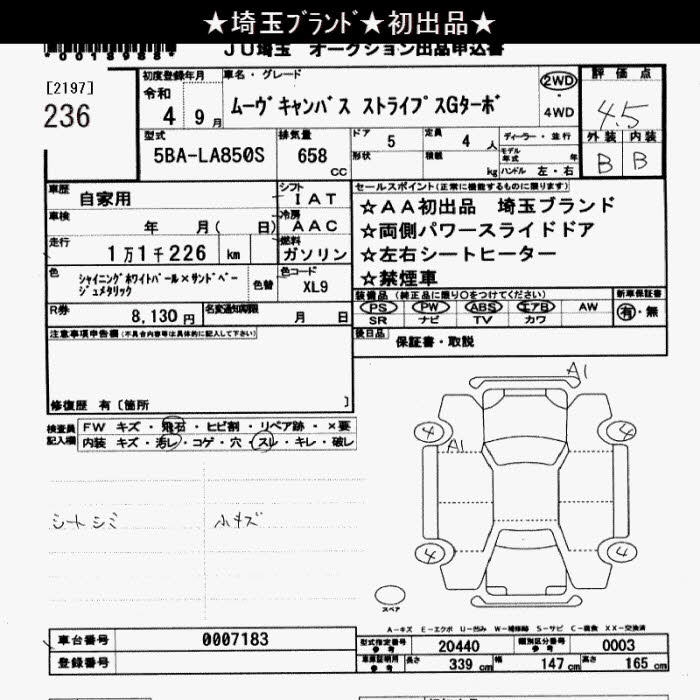 ★埼玉ﾌﾞﾗﾝﾄﾞ★初出品★
JU埼玉 オークション出品申込書
[2197]
236
初度登録年月
令和
4 9月
車名・グレード
ムーヴキャンバス ストライプスGターボ
2WD
・
4WD
評価点
4.5
外装 内装
B B
型式
5BA-LA850S
排気量
658
CC
ドア 5
形状
定員 4 人
積載 kg
ディーラー・並行
モデル年式 年
ハンドル 左・右
車歴
自家用
シフト
IAT
車検
年 月( 日)
冷房
AAC
走行
1万1千226 km
燃料
ガソリン
色
シャイニングホワイトパール×サンドベージュメタリック
色替
色コード
XL9
R券
8,130円
名変通知期限
月 日
セールスポイント(正常に機能するものに限ります)
☆AA初出品 埼玉ブランド
☆両側パワースライドドア
☆左右シートヒーター
☆禁煙車
装備品(純正品に限り○をつけてください)
PS PW ABS エアB AW
SR ナビ TV カワ
新車保証書
有・無
後日品
保証書・取説
注意事項申告欄(不具合内容等は具体的に記入して下さい)
修復歴 有〔箇所 〕
検査員記入欄
FW キズ・飛石・ヒビ割・リペア跡・×要
内装 キズ・汚レ・コゲ・穴・スレ・キレ・破レ
シートシミ
小キズ
A1
4
A1
4
4
4
スペア
A-キズ E-エクボ U-凹み W-補修跡 S-サビ C-腐食 XX-交換済
車台番号
0007183
登録番号
型式指定番号
参考
20440
類別区分番号
参考
0003
車庫証明用
参考
長さ 339 cm
幅 147 cm
高さ 165 cm